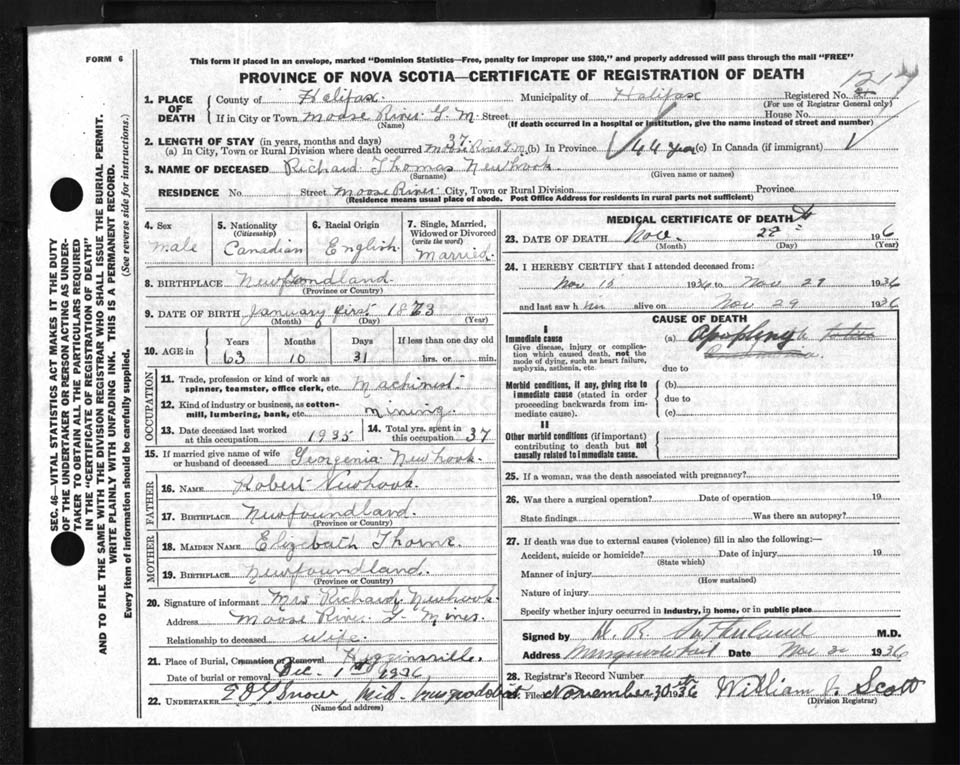 FORM 6
This form if placed in an envelope, marked "Dominion Statistics—Free, penalty for improper use $300," and properly addressed will pass through the mail "FREE"
PROVINCE OF NOVA SCOTIA—CERTIFICATE OF REGISTRATION OF DEATH
1. PLACE OF DEATH County of Halifax Municipality of Halifax Registered No. 1217
(For use of Registrar General only)
If in City or Town Moose River G. M. Street House No.
(Name) (If death occurred in a hospital or institution, give the name instead of street and number)
2. LENGTH OF STAY (in years, months and days) 37
(a) In City, Town or Rural Division where death occurred Moose River G. M. (b) In Province 44 years (c) In Canada (if immigrant)
3. NAME OF DECEASED Richard Thomas Newhook
(Surname) (Given name or names)
RESIDENCE No. Street Moose River City, Town or Rural Division Province
(Residence means usual place of abode. Post Office Address for residents in rural parts not sufficient)
4. Sex male
5. Nationality (Citizenship) Canadian
6. Racial Origin English
7. Single, Married, Widowed or Divorced (write the word) Married
8. BIRTHPLACE Newfoundland
(Province or Country)
9. DATE OF BIRTH January first 1873
(Month) (Day) (Year)
10. AGE in Years Months Days If less than one day old
63 10 31 hrs. or min.
OCCUPATION
11. Trade, profession or kind of work as spinner, teamster, office clerk, etc. Machinest
12. Kind of industry or business, as cotton-mill, lumbering, bank, etc. mining
13. Date deceased last worked at this occupation 1935
14. Total yrs. spent in this occupation 37
15. If married give name of wife or husband of deceased Georgenia Newhook
FATHER
16. NAME Robert Newhook
17. BIRTHPLACE Newfoundland
(Province or Country)
MOTHER
18. MAIDEN NAME Elizebath Thorne
19. BIRTHPLACE Newfoundland
(Province or Country)
20. Signature of informant Mrs Richard Newhook
Address Moose River G. Mines
Relationship to deceased wife
21. Place of Burial, Cremation or Removal Higginsville
Date of burial or removal Dec. 1st 1936
22. UNDERTAKER Snow,
(Name and address)
MEDICAL CERTIFICATE OF DEATH
23. DATE OF DEATH Nov. 1936
(Month) (Day) (Year)
24. I HEREBY CERTIFY that I attended deceased from:
Nov 15 1936 to Nov 29 1936
and last saw him alive on Nov 29 1936
CAUSE OF DEATH
I
Immediate cause
Give disease, injury or complication which caused death, not the mode of dying, such as heart failure, asphyxia, asthenia, etc.
(a) Apoplexy
due to
Morbid conditions, if any, giving rise to immediate cause (stated in order proceeding backwards from immediate cause).
(b)
due to
(c)
II
Other morbid conditions (if important) contributing to death but not causally related to immediate cause.
25. If a woman, was the death associated with pregnancy?
26. Was there a surgical operation? Date of operation 19
State findings Was there an autopsy?
27. If death was due to external causes (violence) fill in also the following:—
Accident, suicide or homicide? Date of injury 19
(State which)
Manner of injury
(How sustained)
Nature of injury
Specify whether injury occurred in industry, in home, or in public place
Signed by D. R. Sutherland M.D.
Address Musquodoboit Date Nov 1936
28. Registrar's Record Number
Filed November 30th 1936 William J. Scott
(Division Registrar)
SEC. 46—VITAL STATISTICS ACT MAKES IT THE DUTY
OF THE UNDERTAKER OR PERSON ACTING AS UNDER-
TAKER TO OBTAIN ALL THE PARTICULARS REQUIRED
IN THE "CERTIFICATE OF REGISTRATION OF DEATH"
AND TO FILE THE SAME WITH THE DIVISION REGISTRAR WHO SHALL ISSUE THE BURIAL PERMIT.
WRITE PLAINLY WITH UNFADING INK. THIS IS A PERMANENT RECORD.
Every item of information should be carefully supplied. (See reverse side for instructions.)